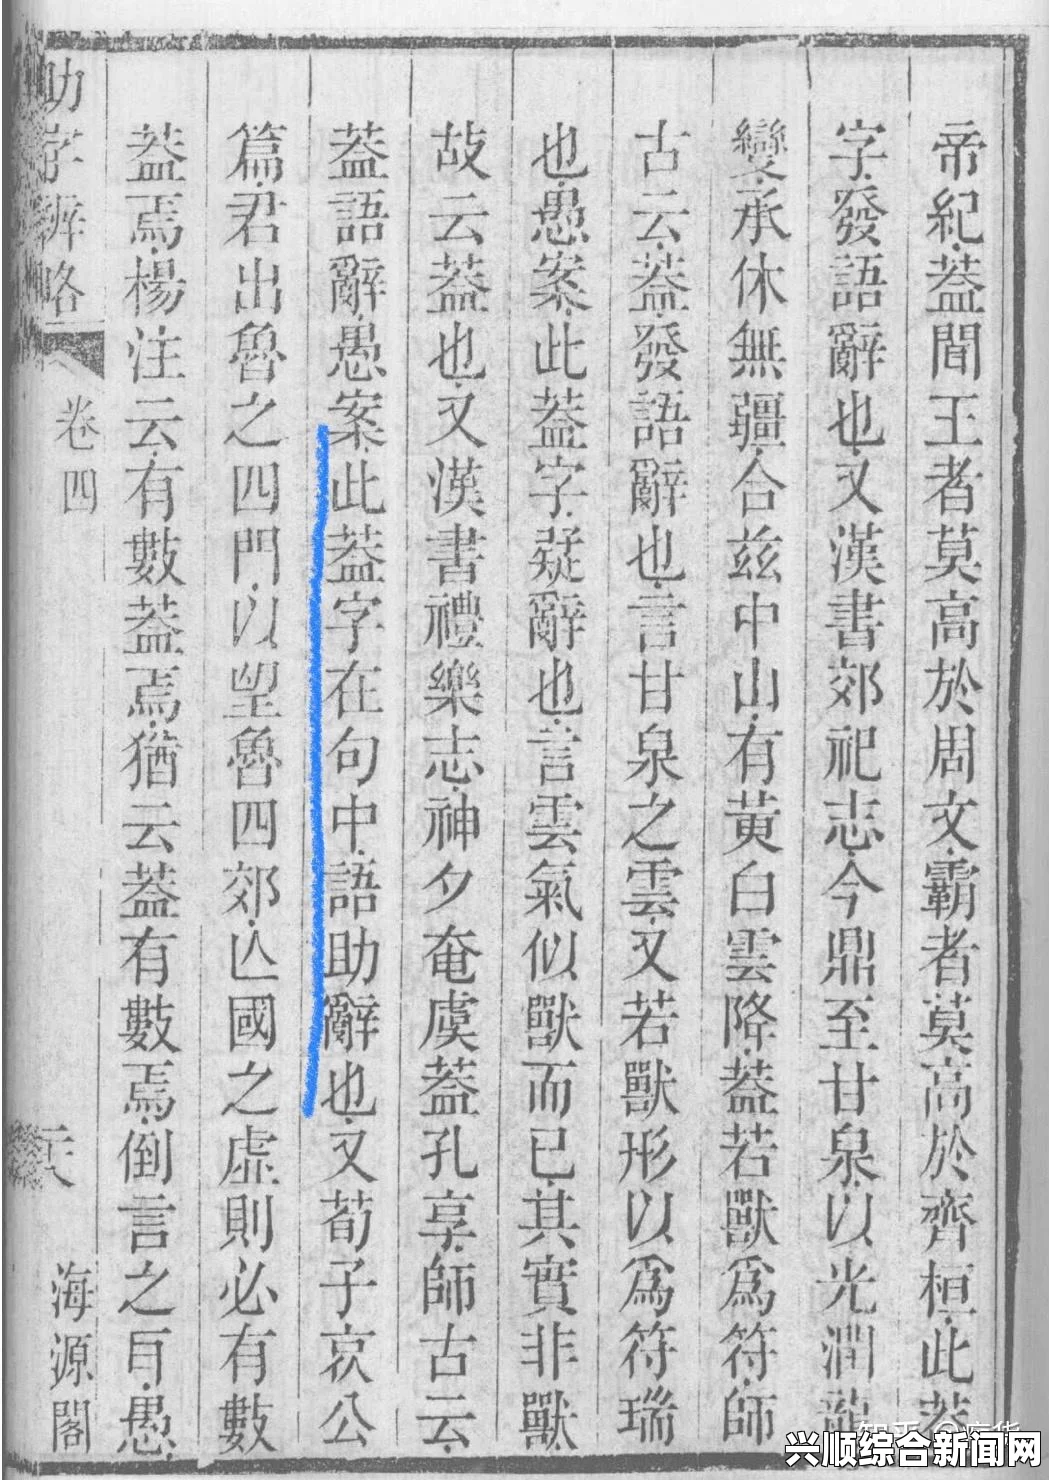 帝紀蓋聞王者莫高於周文霸者莫高於齊桓此蓋
字發語辭也又漢書郊祀志今鼎至甘泉以光潤龍
變承休無疆合茲中山有黃白雲降蓋若獸爲符師
古云蓋發語辭也言甘泉之雲又若獸形以爲符瑞
也愚案此蓋字疑辭也言雲氣似獸而已其實非獸
故云蓋也又漢書禮樂志神夕奄虞蓋孔享師古云
蓋語辭愚案此蓋字在句中語助辭也又荀子哀公
篇君出魯之四門以望魯四郊亾國之虛則必有數
蓋焉楊注云有數蓋焉猶云蓋有數焉倒言之耳愚
助字辨略
卷四
海源閣
知乎
兴顺综合新闻网